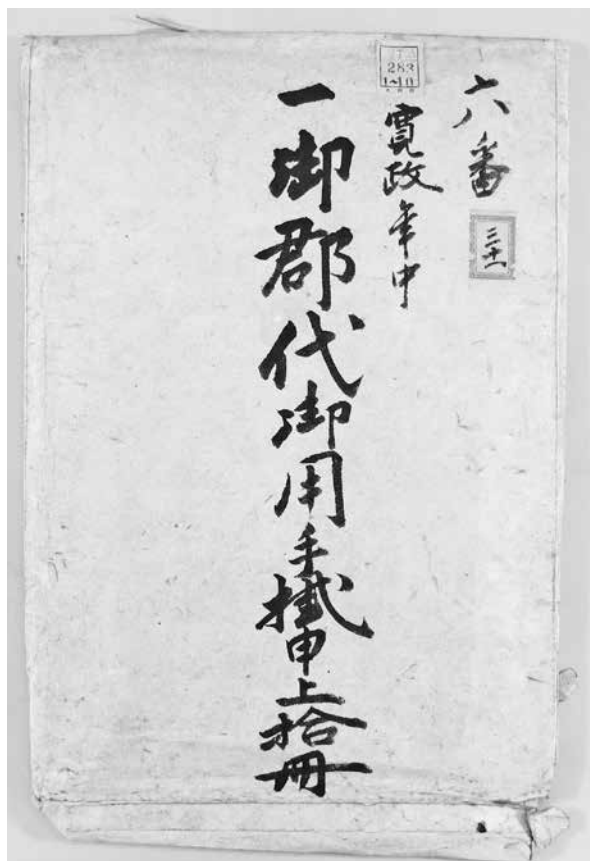 六番
三十一
283
1~10
寛政年中
一御郡代御用手掛申上拾冊